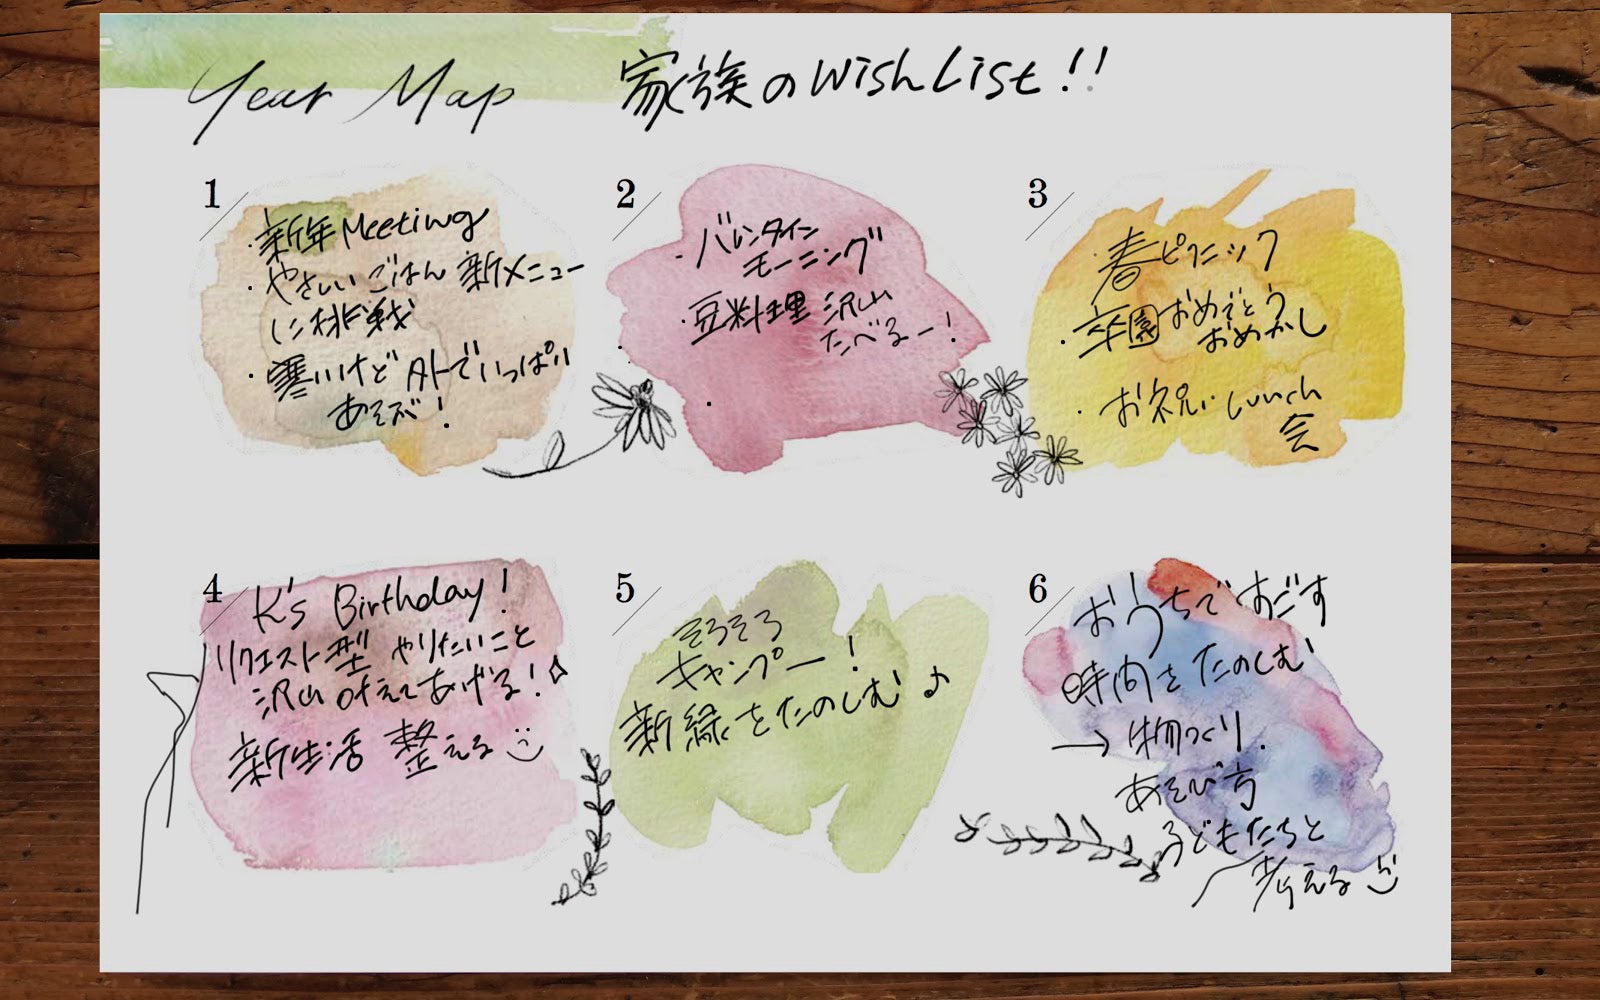 Year Map
家族のWish List!!
1
・新年Meeting
・やさしいごはん 新メニュー
に挑戦
・寒いけど外でいっぱい
あそぶ!
2
・バレンタイン
モーニング
・豆料理 沢山
たべるー!
・
3
・春ピクニック
・卒園おめでとう
おめかし
・お祝いLunch
会
4
K's Birthday!
リクエスト型 やりたいこと
沢山叶えてあげる!☆
新生活 整える
5
そろそろ
キャンプー!
新緑をたのしむ♪
6
おうちですごす
時間をたのしむ
→物づくり.
あそび方
子どもたちと
考える